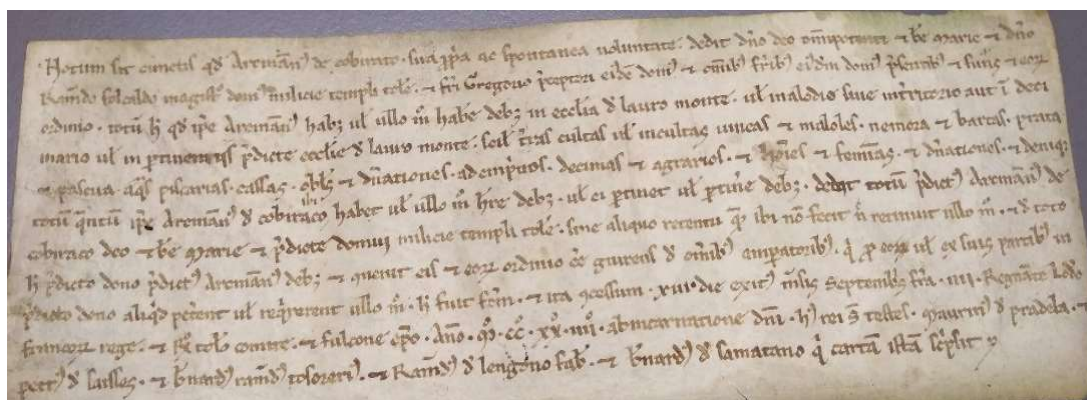 Notum sit cunctis qd Arcmãn9 de cobirato · sua ppa ac spontanea uoluntate · dedit dño deo omipotenti et be Marie et dño
Ramdo folcaldo magistro dom9 milicie templi tole · et fri Gregorio pceptori eide dom9 et omib3 frib3 eidm dom9 psentib3 et futuris et eor
ordinio · totu h qd ipse Arcmãn9 hab3 ul ullo mo habe deb3 in ecclia d lauro monte · ul in alodio siue in territorio aut i deci
mario ul in ptinentiis pdicte ecclie d lauro monte · scil tras cultas ul incultas uineas et maloles · nemora et bartas · prata
et pascua aqs piscarias · cassas · et dnationes · ademprios · decimas et agrarios · et hoies et feminas · et dnationes · et deniq3
totu qntu ipse Arcmãn9 d cobiraco ibi habet ul ullo mo hre deb3 · ul ei ptinet ul ptinere deb3 · dedit totu pdict9 Arcmãn9 de
cobiraco deo et be Marie et pdicte domui milicie templi tole · sine aliquo retentu qm ibi no fecit n retinuit ullo mo · et d toto
h pdicto dono pdict9 Arcmãn9 deb3 et conuenit eis et eor ordinio ee guirens d omib3 amparatorib3 · q p eor ul ex suis partib3 in
pdicto dono aliqd peterent ul reqrerent ullo mo · h fuit fcm · et ita concessum · xvii · die exit9 msis Septembris fra · iiii · Regnante Lodo
francor rege · et R tole comite · et fulcone epo · Ano · Mo · CCo · XXo · iiiio · ab incarnatione dni · h9 rei st testes · Mauriti9 d pradela · et
petr9 d saisses · et bnard9 ramd9 tosoreri9 · et Ramd9 d lengono fab · et bnard9 d samatano q carta ista scpsit